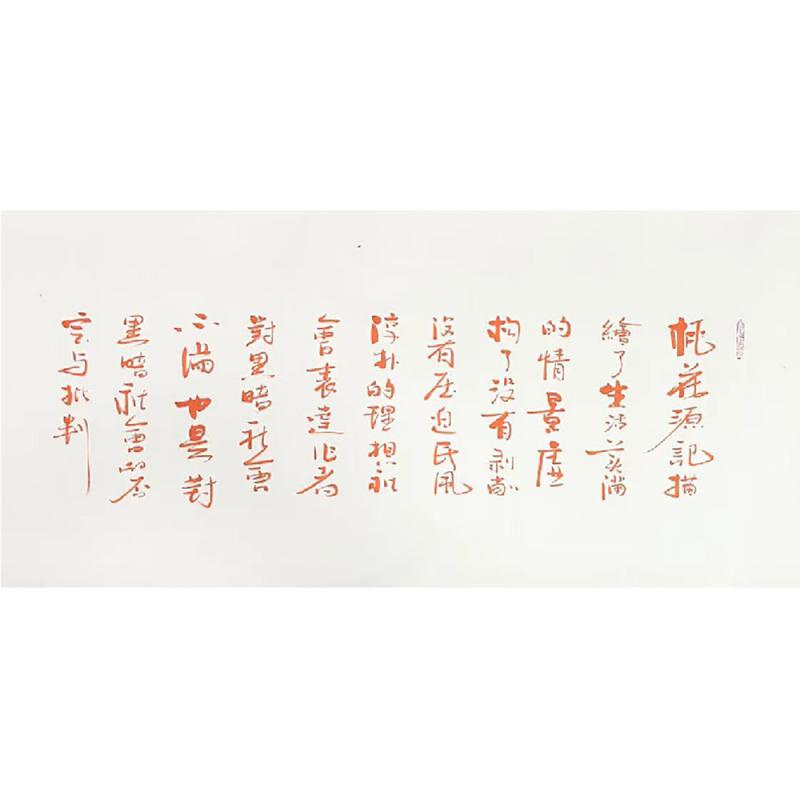 桃花源記描
繪了生活美滿
的情景虚
构了没有剥削
没有压迫民風
淳朴的理想社
會表達作者
對黑暗社會
不满也是對
黑暗社會的否
定与批判